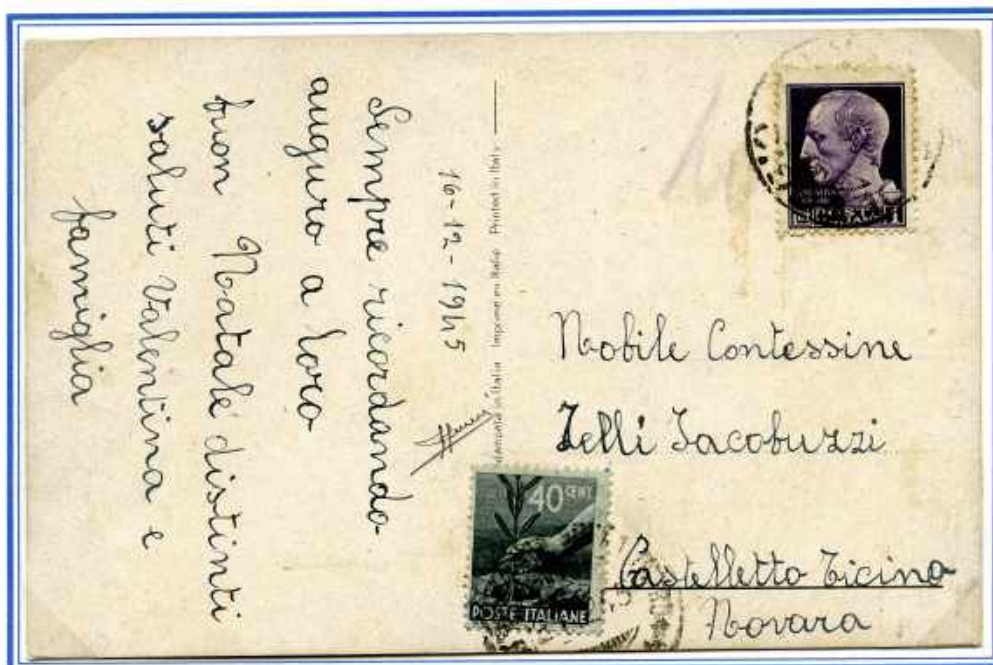 16-12-1945
Sempre ricordando
auguro a loro
buon Natale distinti
saluti Valentina e
famiglia
Stampato in Italia Imprimé en Italie Printed in Italy
Nobile Contessine
Zelli Jacobuzzi
Castelletto Ticino
Novara
40 CENT
POSTE ITALIANE